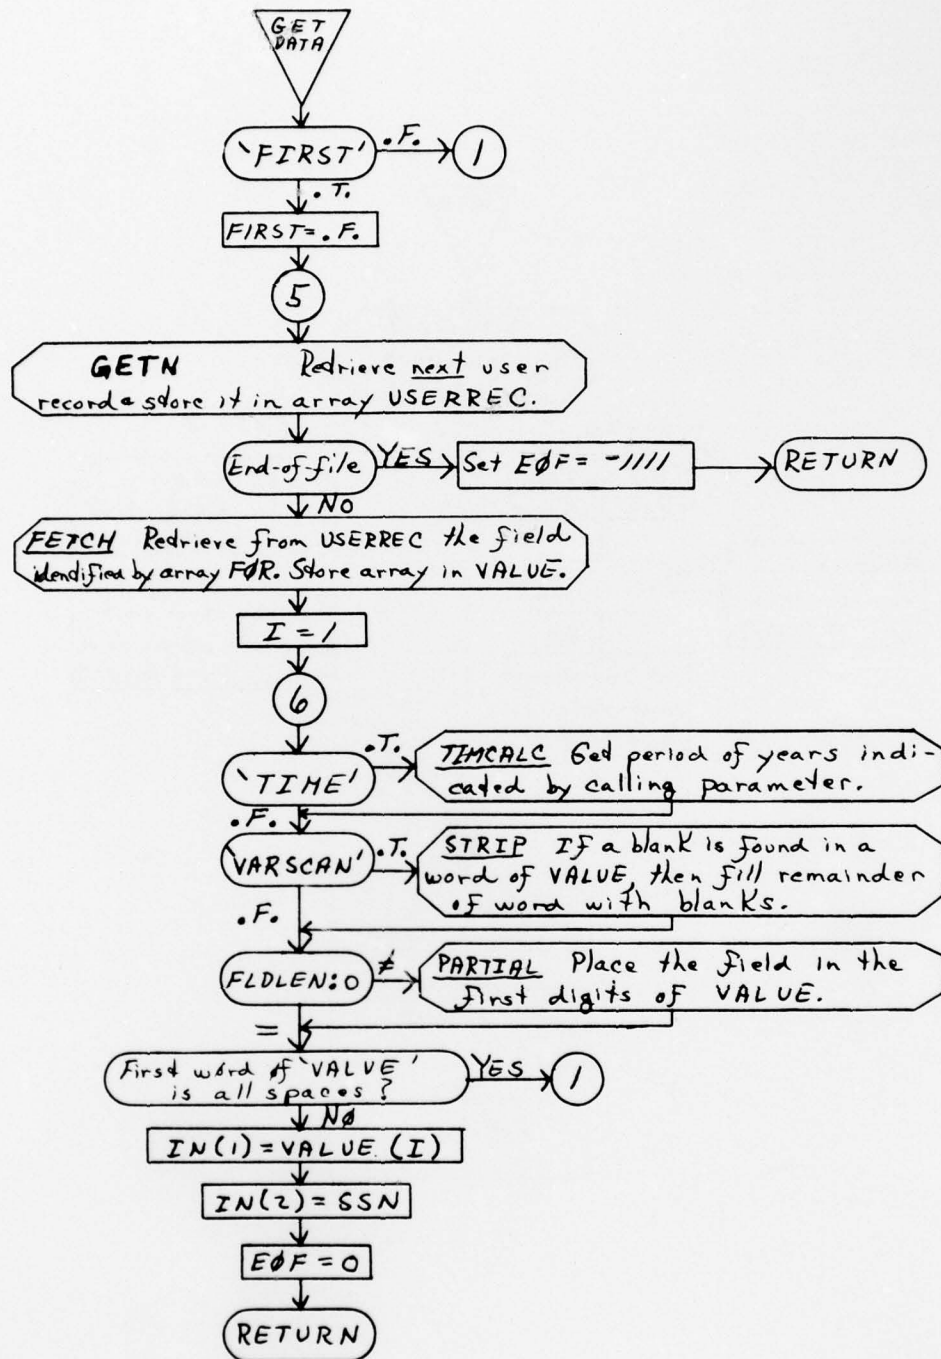 GET
DATA
'FIRST' .F. 1
.T.
FIRST=.F.
5
GETN Retrieve next user
record & store it in array USERREC.
End-of-file YES Set EØF = -1111 RETURN
NO
FETCH Retrieve from USERREC the field
identified by array FØR. Store array in VALUE.
I = 1
6
'TIME' .T. TIMCALC Get period of years indi-
cated by calling parameter.
.F.
'VARSCAN' .T. STRIP If a blank is found in a
word of VALUE, then fill remainder
of word with blanks.
.F.
FLDLEN:0 ≠ PARTIAL Place the field in the
first digits of VALUE.
=
First word of 'VALUE'
is all spaces? YES 1
NØ
IN(1)=VALUE (I)
IN(2)=SSN
EØF=0
RETURN